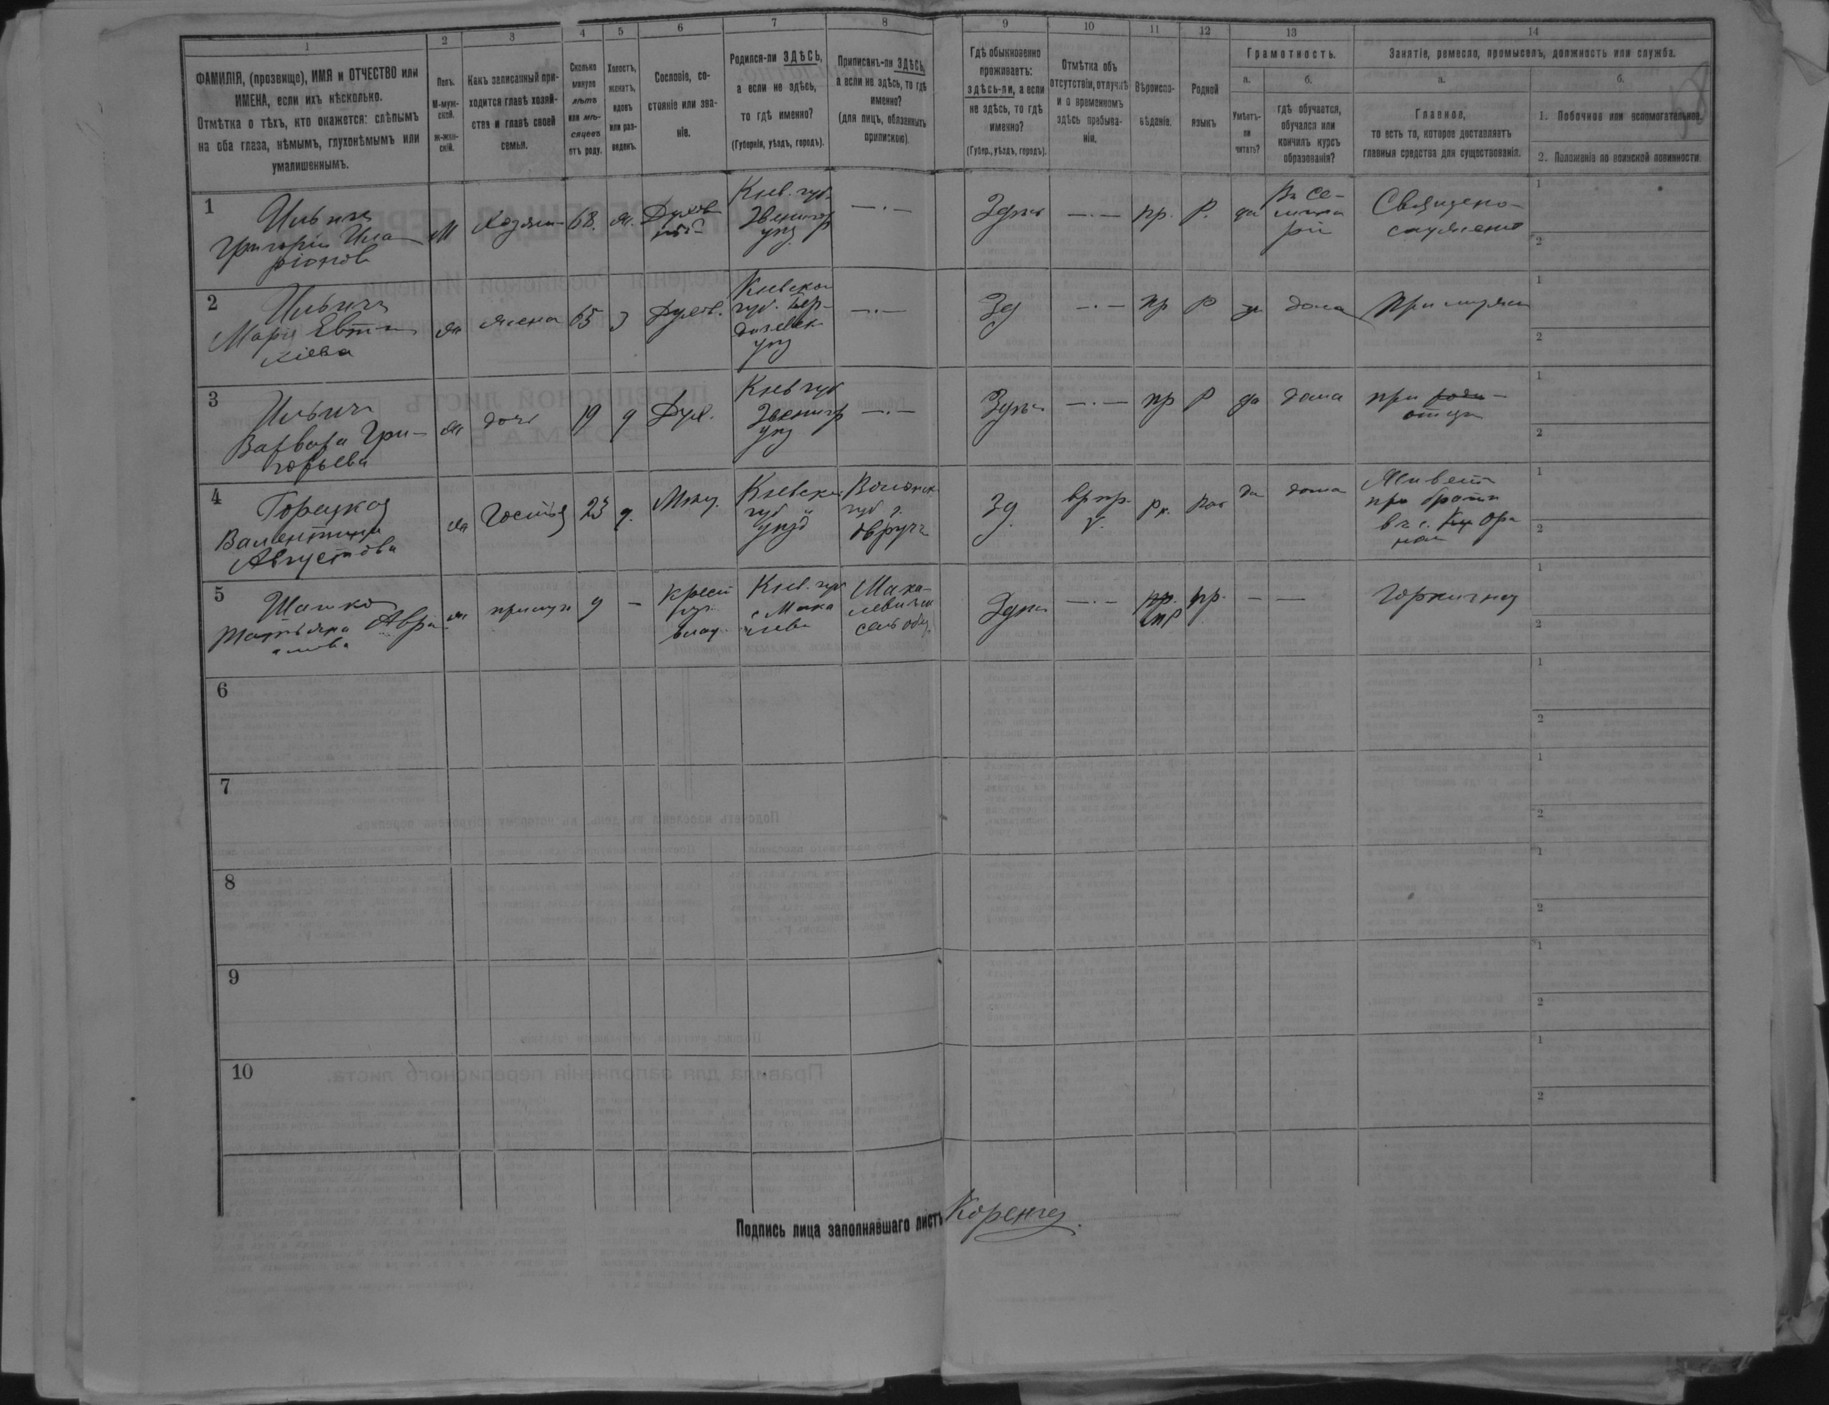 1
2
3
4
5
6
7
8
9
10
11
12
13
14
ФАМИЛІЯ, (прозвище), ИМЯ и ОТЧЕСТВО или
ИМЕНА, если ихъ нѣсколько.
Отмѣтка о тѣхъ, кто окажется: слѣпымъ
на оба глаза, нѣмымъ, глухонѣмымъ или
умалишеннымъ.
Полъ.
М-муж-
ской.
Ж-жен-
скій.
Какъ записанный при-
ходится главѣ хозяй-
ства и главѣ своей
семьи.
Сколько
минуло
лѣтъ
или мѣ-
сяцевъ
отъ роду.
Холостъ,
женатъ,
вдовъ
или раз-
веденъ.
Сословіе, со-
стояніе или зва-
ніе.
Родился-ли ЗДѢСЬ,
а если не здѣсь,
то гдѣ именно?
(Губернія, уѣздъ, городъ).
Приписанъ-ли ЗДѢСЬ,
а если не здѣсь, то гдѣ
именно?
(для лицъ, обязанныхъ
припискою).
Гдѣ обыкновенно
проживаетъ:
здѣсь-ли, а если
не здѣсь, то гдѣ
именно?
(Губер., уѣздъ, городъ).
Отмѣтка объ
отсутствіи, отлучкѣ
и о временномъ
здѣсь пребыва-
ніи.
Вѣроиспо-
вѣданіе.
Родной
языкъ
Грамотность.
а.
б.
Умѣетъ-
ли
читать?
гдѣ обучается,
обучался или
кончилъ курсъ
образованія?
Занятіе, ремесло, промыселъ, должность или служба.
а.
б.
Главное,
то есть то, которое доставляетъ
главныя средства для существованія.
1. Побочное или вспомогательное.
2. Положеніе по воинской повинности.
1
Ильичъ
Григорій Ила-
ріоновъ
М
Хозяинъ
68
ж.
Духов-
ный
Кіев. губ.
Звенигор
уѣз
Здѣсь
пр.
Р.
да
Въ се-
мина
ріи
Священо-
служение
1
2
2
Ильичъ
Марія Евти-
хіева
ж
жена
65
З
Духов.
Кіевской
губ. Бер-
дичевск
уѣз
Зд
пр
Р
да
дома
при мужѣ
1
2
3
Ильичъ
Варвара Гри-
горьева
ж
дочь
19
д
Дух.
Кіев губ
Звенигор
уѣз
Здѣсь
пр
Р
да
дома
при
отцѣ
1
2
4
Горецкая
Валентина
Августова
ж
Гостья
23
д.
Мѣщ.
Кіевской
губ и
уѣзд
Волынск
губ г.
Овручъ
Зд.
вр пр.
Р.к.
Рос
да
дома
Живетъ
при братѣ
въ с.
1
2
5
Шашко
Татьяна Авра
амова
ж
прислуга
9
Кресть
Кіев. губ
с Мака
Миха-
левичи
сель общ.
Здѣсь
пр.
пр.
Горничная
1
2
6
1
2
7
1
2
8
1
2
9
1
2
10
1
2
Подпись лица заполнявшаго листъ